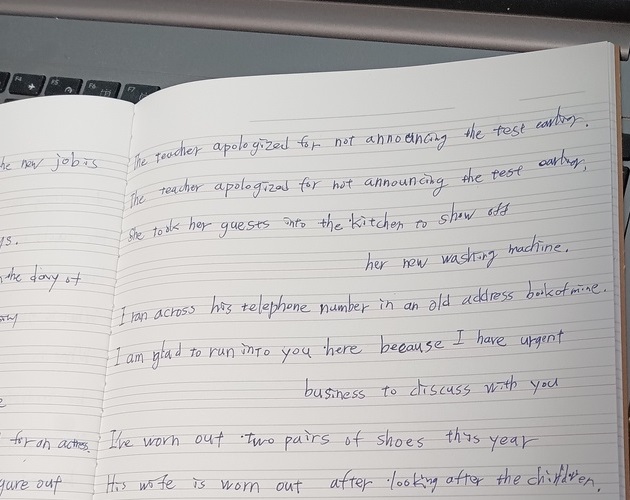 he new job is
ys.
the day of
for an actress.
gure out
The teacher apologized for not announcing the test earlier.
The teacher apologized for not announcing the test earlier.
She took her guests into the kitchen to show off
her new washing machine.
I ran across his telephone number in an old address book of mine.
I am glad to run into you here because I have urgent
business to discuss with you
I've worn out two pairs of shoes this year
His wife is worn out after looking after the children.